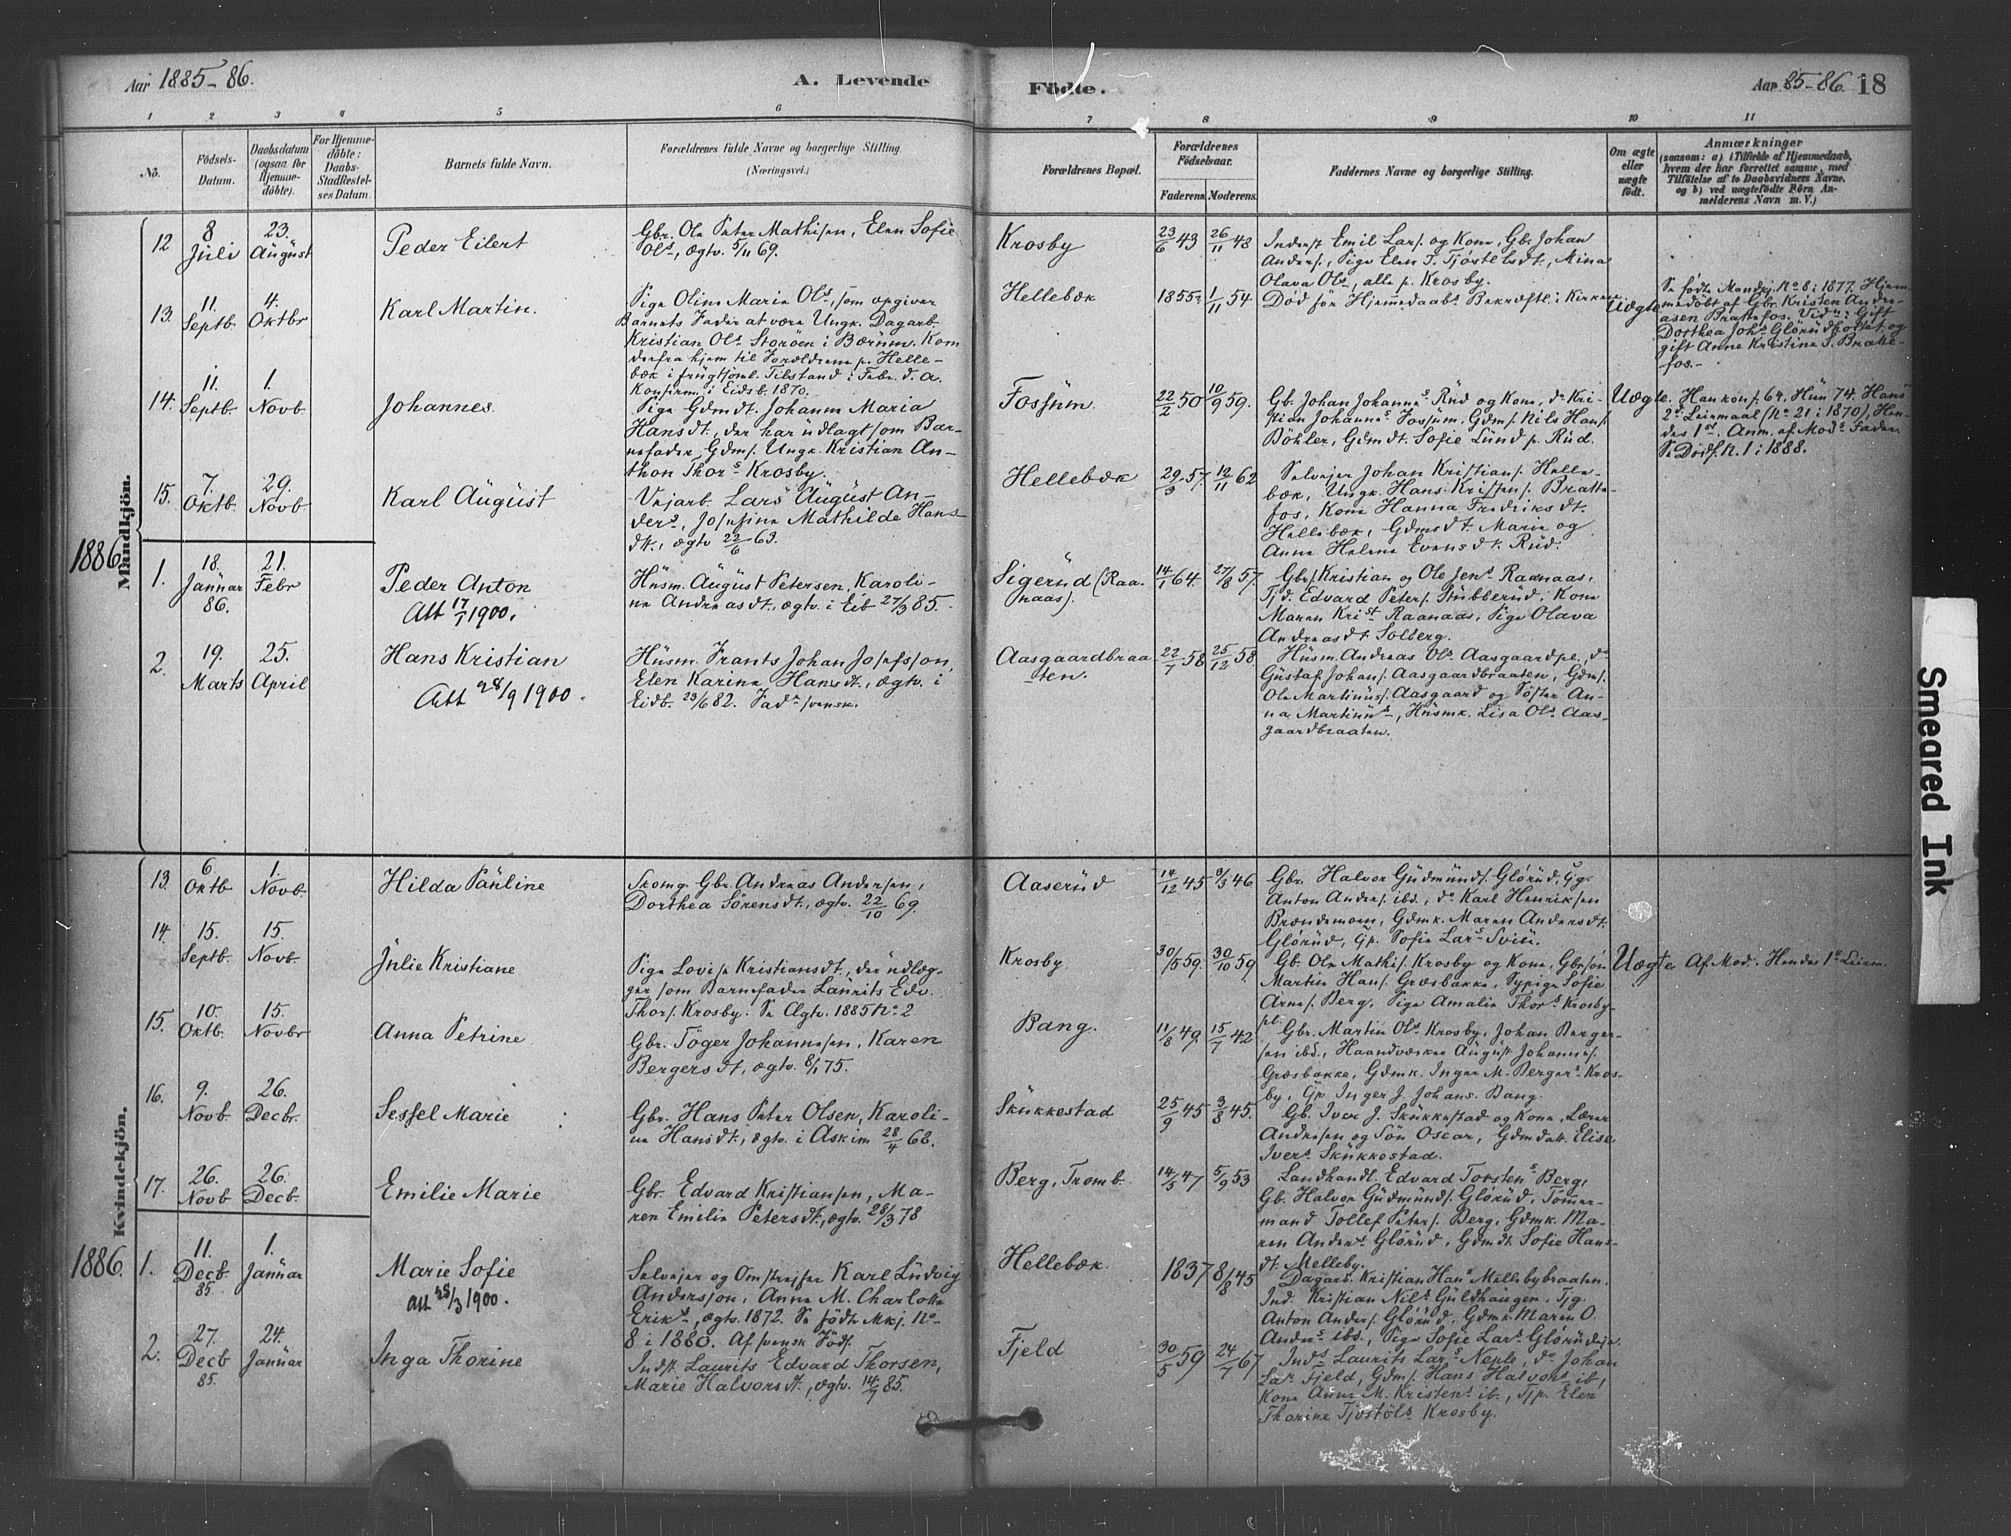 Aar 1885-86.
A. Levende
Födte.
Aar 85-86. 18
1 2 3 4 5 6 7 8 9 10 11
No.
Födsels-Datum.
Daabsdatum (ogsaa for Hjemme-döbte).
For Hjemme-döbte: Daabs-Stadfæstel-ses Datum.
Barnets fulde Navn.
Forældrenes fulde Navne og borgerlige Stilling.
(Næringsvei.)
Forældrenes Bopæl.
Forældrenes Födselsaar.
Faderens Moderens
Faddernes Navne og borgerlige Stilling.
Om ægte eller uægte födt.
Anmærkninger
(saasom: a) i Tilfælde af Hjemmedaab,
hvem der har forrettet samme, med
Tilföielse af to Daabsvidners Navne,
og b) ved uægtefödte Börn An-
melderens Navn m. V.)
Mandkjön.
12 8 Juli 23. August
Peder Eilert
Gbr. Ole Peter Mathisen, Elen Sofie
Ols, ægtv. 5/11 69.
Krosby
23/6 43 26/11 48
Inderst Emil Lars. og Kone, Gbr Johan
Anders., Pige Elen T. Tjostelsdt., Mina
Olava Ols, alle p. Krosby.
13. 11. Septb. 4. Oktbr
Karl Martin.
Pige Oline Marie Ols, som opgiver
Barnets Fader at være Ungk. Dagarb.
Kristian Ols. Storöen i Bærum. Kom
derfra hjem til Forældrene p. Helle-
bæk i frugtsoml. Tilstand i Febr. d. A.
Konfirm. i Eidsb. 1870.
Hellebæk
1855 1/11 54
Död før Hjemmedaabs Bekræftl. i Kirken
Uægte
Se födte Mandkj. No 8 i 1877. Hjem-
medöbt af Gbr. Kristen Andre-
asen Brattefos. Vidn: Gift
Dorthea Johs Glörud og
gift Anne Kristine S. Bratte-
fos.-
14. 11. Septb. 1. Novb
Johannes.
Pige Gdmdt. Johanne Maria
Hansdt., der har udlagt som Bar-
nefader Gdms. Ungk. Kristian An-
thon Thors Krosby.
Fossum.
22/2 50 10/9 59.
Gb. Johan Johannes Rud og Kone, do Kri-
stian Johannes Fossum, Gdms. Nils Hans.
Böhler, Gdmdt. Sofie Lund p. Rud.
Uægte.
Han konf. 64. Hun 74. Hans
2d Leiermaal (No 21 i 1870), Hen-
des 1st. Anm. af Mods Fader.
Se Dödsf. N. 1 i 1888.
15. 7. Oktb. 29. Novb
Karl August
Veiarb. Lars August An-
ders, Josefine Mathilde Hans-
dt., ægtv 22/6 63.
Hellebæk
29/3 57 12/11 62
Selveier Johan Kristians. Helle-
bæk, Ungk. Hans Kristens. Bratte-
fos, Kone Hanna Fredriksdt.
Hellebæk, Gdmsdt. Marie og
Anne Helene Evensdt. Rud.
1886
1. 18. Januar 86. 21. Febr
Peder Anton
Att 17/7 1900.
Husm. August Petersen, Karoli-
ne Andreasdt., ægtv. i Eib 27/3 85.
Sigerud (Raa-
naas).
14/1 64. 27/8 57.
Gbr. Kristian og Ole Jens. Raanaas,
Tjd. Edvard Peters. Stubberud, Kone
Maren Krist. Raanaas, Pige Olava
Andreasdt. Solberg.
2. 19. Marts 25. April
Hans Kristian
Att 28/9 1900.
Husm. Frants Johan Josefsson,
Elen Karine Hansdt., ægtv. i
Eidb. 23/6 82. Fadn svensk.
Aasgaardbraa-
ten.
22/7 58 25/12 58.
Husm. Andreas Ols. Aasgaardpl., do
Gustaf Johans. Aasgaardbraaten, Gdms.
Ole Martinus. Aasgaard og Söster An-
na Martinus, Husmk. Lisa Ols. Aas-
gaardbraaten.
Kvindekjön.
13. 6 Oktb 1. Novb.
Hilda Pauline
Skomg. Gbr. Andreas Andersen,
Dorthea Sörensdt., ægtv. 22/10 69.
Aaserud
14/12 45 9/3 46
Gbr. Halvor Gudmunds. Glörud, Gg.
Anton Anders. ibd., do Karl Henriksen
Brændemoen, Gdmk. Maren Andersdt.
Glörud, Gp. Sofie Lars Sviu.
14. 15. Septb. 15. Novb.
Julie Kristiane
Pige Lovise Kristiansdt., der udlæg-
ger som Barnefader Laurits Edv.
Thors. Krosby. Se Ægtv. 1885 No 2
Krosby
30/5 59. 30/10 59
Gb. Ole Mathis. Krosby og Kone, Gbrsön
Martin Hans. Græsbakke, Sypige Sofie
Arnes. Berg, Pige Amalie Thors Krosby-
pl.
Uægte
Af Mod. Hendes 1e Leierm.
15. 10. Oktb. 15. Novbr
Anna Petrine
Gbr. Töger Johannesen, Karen
Bergersdt, ægtv. 8/1 75.
Bang.
11/8 49 15/7 42
Gbr. Martin Ols Krosby, Johan Berger-
sen ibd., Haandværker August Johannes.
Græsbakke, Gdmk. Inger M. Bergers Kros-
by, Gp. Inger J. Johans. Bang.
16. 9. Novb 26. Decbr.
Sessel Marie
Gbr. Hans Peter Olsen, Karoli-
ne Hansdt., ægtv. i Askim 28/4 68.
Skukkestad
25/9 45 3/8 45.
Gb. Iver J. Skukkestad og Kone, Lærer
Andresen og Sön Oscar, Gdmdatt. Elise
Ivers Skukkestad.
17. 26. Novb 26. Decb.
Emilie Marie
Gbr. Edvard Kristiansen, Ma-
ren Emilie Petersdt., ægtv. 28/3 78
Berg, Tromb.
14/5 47 5/9 53
Landhandl. Edvard Torstens Berg,
Gb. Halvor Gudmunds. Glörud, Tömmer-
mand Tollef Peters. Berg, Gdmk. Ma-
ren Anders Glörud, Gdmdt. Sofie Hans-
dt. Melleby.
1886.
1. 11. Decb. 85. 1. Januar
Marie Sofie
att 28/3 1900.
Selveier og Omstreifer Karl Ludvig
Andersson, Anna M. Charlotte
Eriks, ægtv. 1872. Se födte Mkj. No-
8 i 1880. Af svensk Föds.
Hellebæk
1837 8/8 45
Dagarb. Kristian Hans Mellebybraaten.
Ind. Kristian Nils Guldhaugen, Tjg.
Anton Anders. Glörud, Gdmk. Maren O.
Anders ibd., Pige Sofie Lars Glörudeje.
2. 27. Decb 85. 24. Januar
Inga Thorine
Indst. Laurits Edvard Thorsen,
Marie Halvorsdt., ægtv. 14/9 85.
Fjeld
30/5 59 24/7 67
Inds. Laurits Lars Neple, do Johan
Lars Fjeld, Gdms. Hans Halvors ib.,
Kone Anne M. Kristens ib., Tjp. Elen
Thorine Tjostöls Krosby.
Smeared Ink